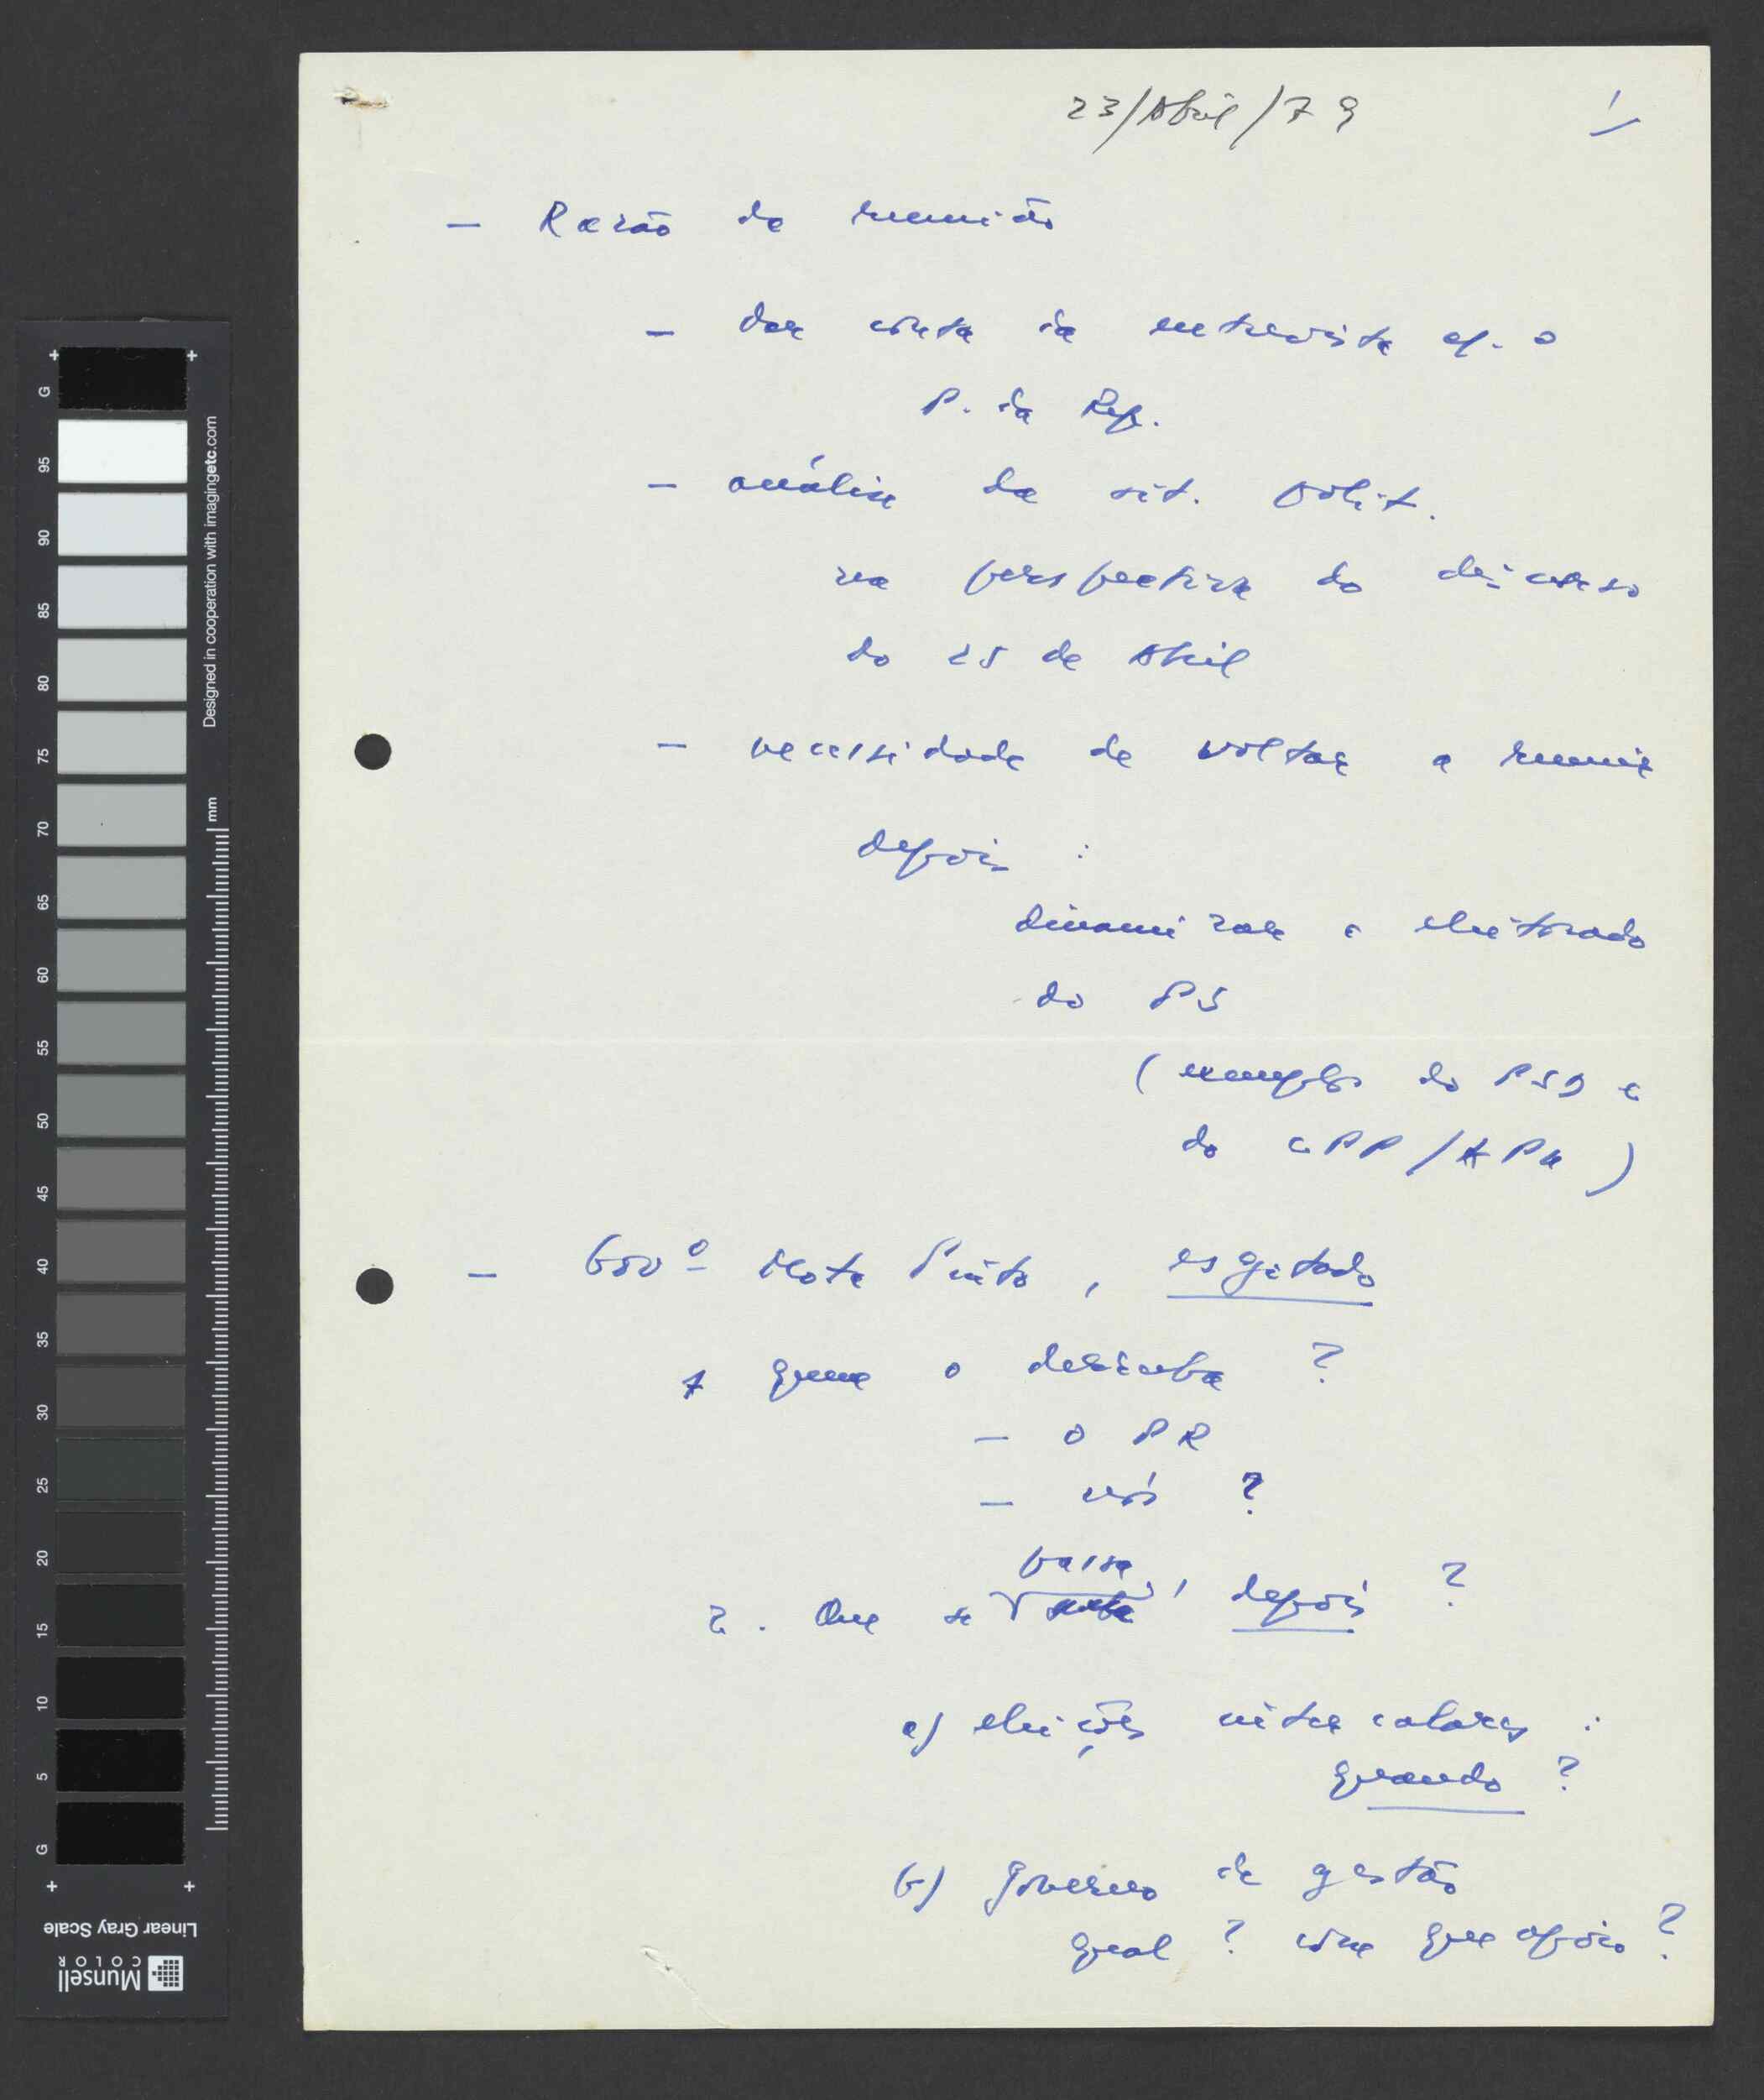 23/Abril/79
1/
— Razão da reunião
— dar conta da entrevista c/. o
P. da Rep.
— análise da sit. polit.
na perspectiva do discurso
do 25 de Abril
— necessidade de voltar a reunir
depois :
dinamizar o eleitorado
do PS
(exemplo do PSD e
do CPP/APU)
— Govº Mota Pinto, esgotado
1 quem o derruba ?
— o PR
— nós ?
passa
2. Que se , depois ?
a) eleições intercalares :
quando ?
b) governo de gestão
qual ? com que apoio ?
G
95
90
85
80
75
70
65
60
55
50
45
40
35
30
25
20
15
10
5
G
mm
Designed in cooperation with imagingetc.com
Linear Gray Scale
Munsell
COLOR